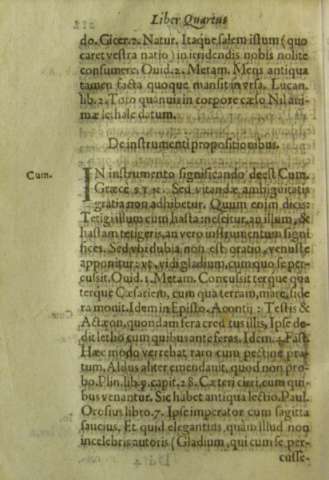 Liber Quartus
do. Cicer. 2. Natur. Itaque salem istum (quo
caret vestra natio) in irridendis nobis nolite
consumere. Ouid. 2. Metam. Mens antiqua
tamen facta quoque mansit in vrsa. Lucan.
lib. 2. Toto quanuis in corpore cæso Nil ani-
mæ lethale datum.
De instrumenti propositionibus.
Cum.
IN instrumento significando deest Cum.
Græce Sed vitandæ ambiguitatis
gratia non adhibetur. Quum enim dicis:
Tetigi illum cum hasta: nescitur, an illum, &
hastam tetigeris, an vero instrumentum signi
fices. Sed vbi dubia non est oratio, venuste
apponitur: vt, vidi gladium, cum quo se per-
cussit. Ouid. 1. Metam. Concussit terque qua
terque Cæsariem, cum qua terram, mare, side
ra mouit. Idem in Episto. Acontij: Testis &
Actæon, quondam fera creditus illis, Ipse de-
dit letho cum quibus ante feras. Idem. 4. Fast.
Hæc modo verrebat, raro cum pectine pra-
tum. Aldus aliter emendauit, quod non pro-
bo. Plin. lib. 9. capit. 28. Cæteri cicri, cum qui-
bus venantur. Sic habet antiqua lectio. Paul.
Orosius libro. 7. Ipse imperator cum sagitta
saucius. Et quid elegantius, quam illud non
incelebris autoris (Gladium, qui cum se per-
cusse-